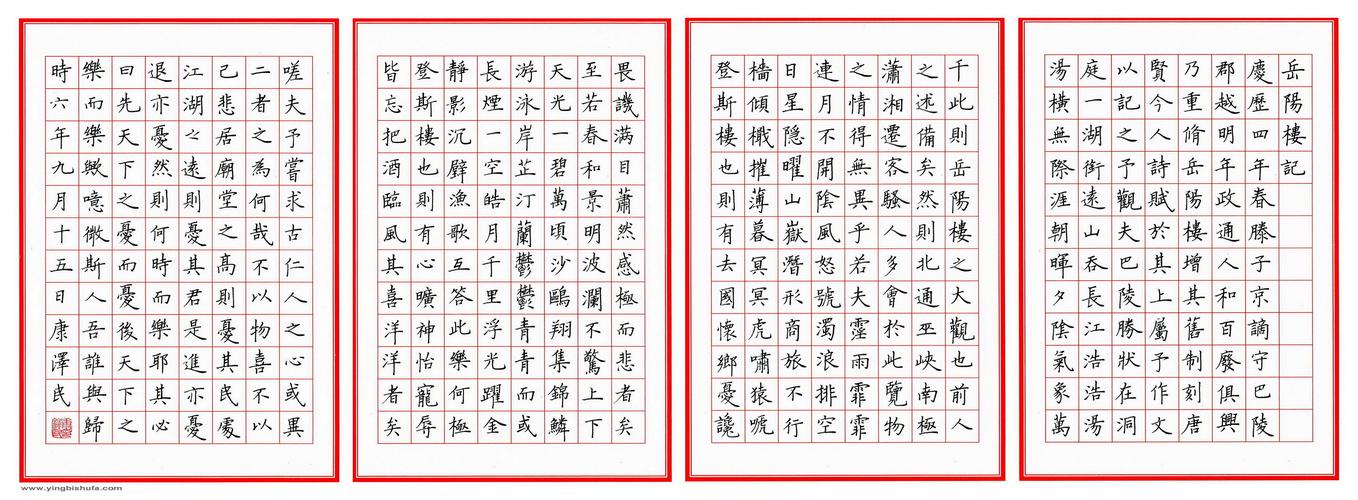 岳陽樓記
慶歷四年春滕子京謫守巴陵
郡越明年政通人和百廢俱興
乃重脩岳陽樓增其舊制刻唐
賢今人詩賦於其上屬予作文
以記之予觀夫巴陵勝狀在洞
庭一湖銜遠山吞長江浩浩湯
湯橫無際涯朝暉夕陰氣象萬
千此則岳陽樓之大觀也前人
之述備矣然則北通巫峽南極
瀟湘遷客騷人多會於此覽物
之情得無異乎若夫霪雨霏霏
連月不開陰風怒號濁浪排空
日星隱曜山嶽潛形商旅不行
檣傾檝摧薄暮冥冥虎嘯猿嗁
登斯樓也則有去國懷鄉憂讒
畏譏满目蕭然感極而悲者矣
至若春和景明波瀾不驚上下
天光一碧萬頃沙鷗翔集錦鱗
游泳岸芷汀蘭鬱鬱青青而或
長煙一空皓月千里浮光躍金
靜影沉璧漁歌互答此樂何極
登斯樓也則有心曠神怡寵辱
皆忘把酒臨風其喜洋洋者矣
嗟夫予嘗求古仁人之心或異
二者之為何哉不以物喜不以
己悲居廟堂之高則憂其民處
江湖之遠則憂其君是進亦憂
退亦憂然則何時而樂耶其必
曰先天下之憂而憂後天下之
樂而樂歟噫微斯人吾誰與歸
時六年九月十五日康澤民
www.yingbishufa.com